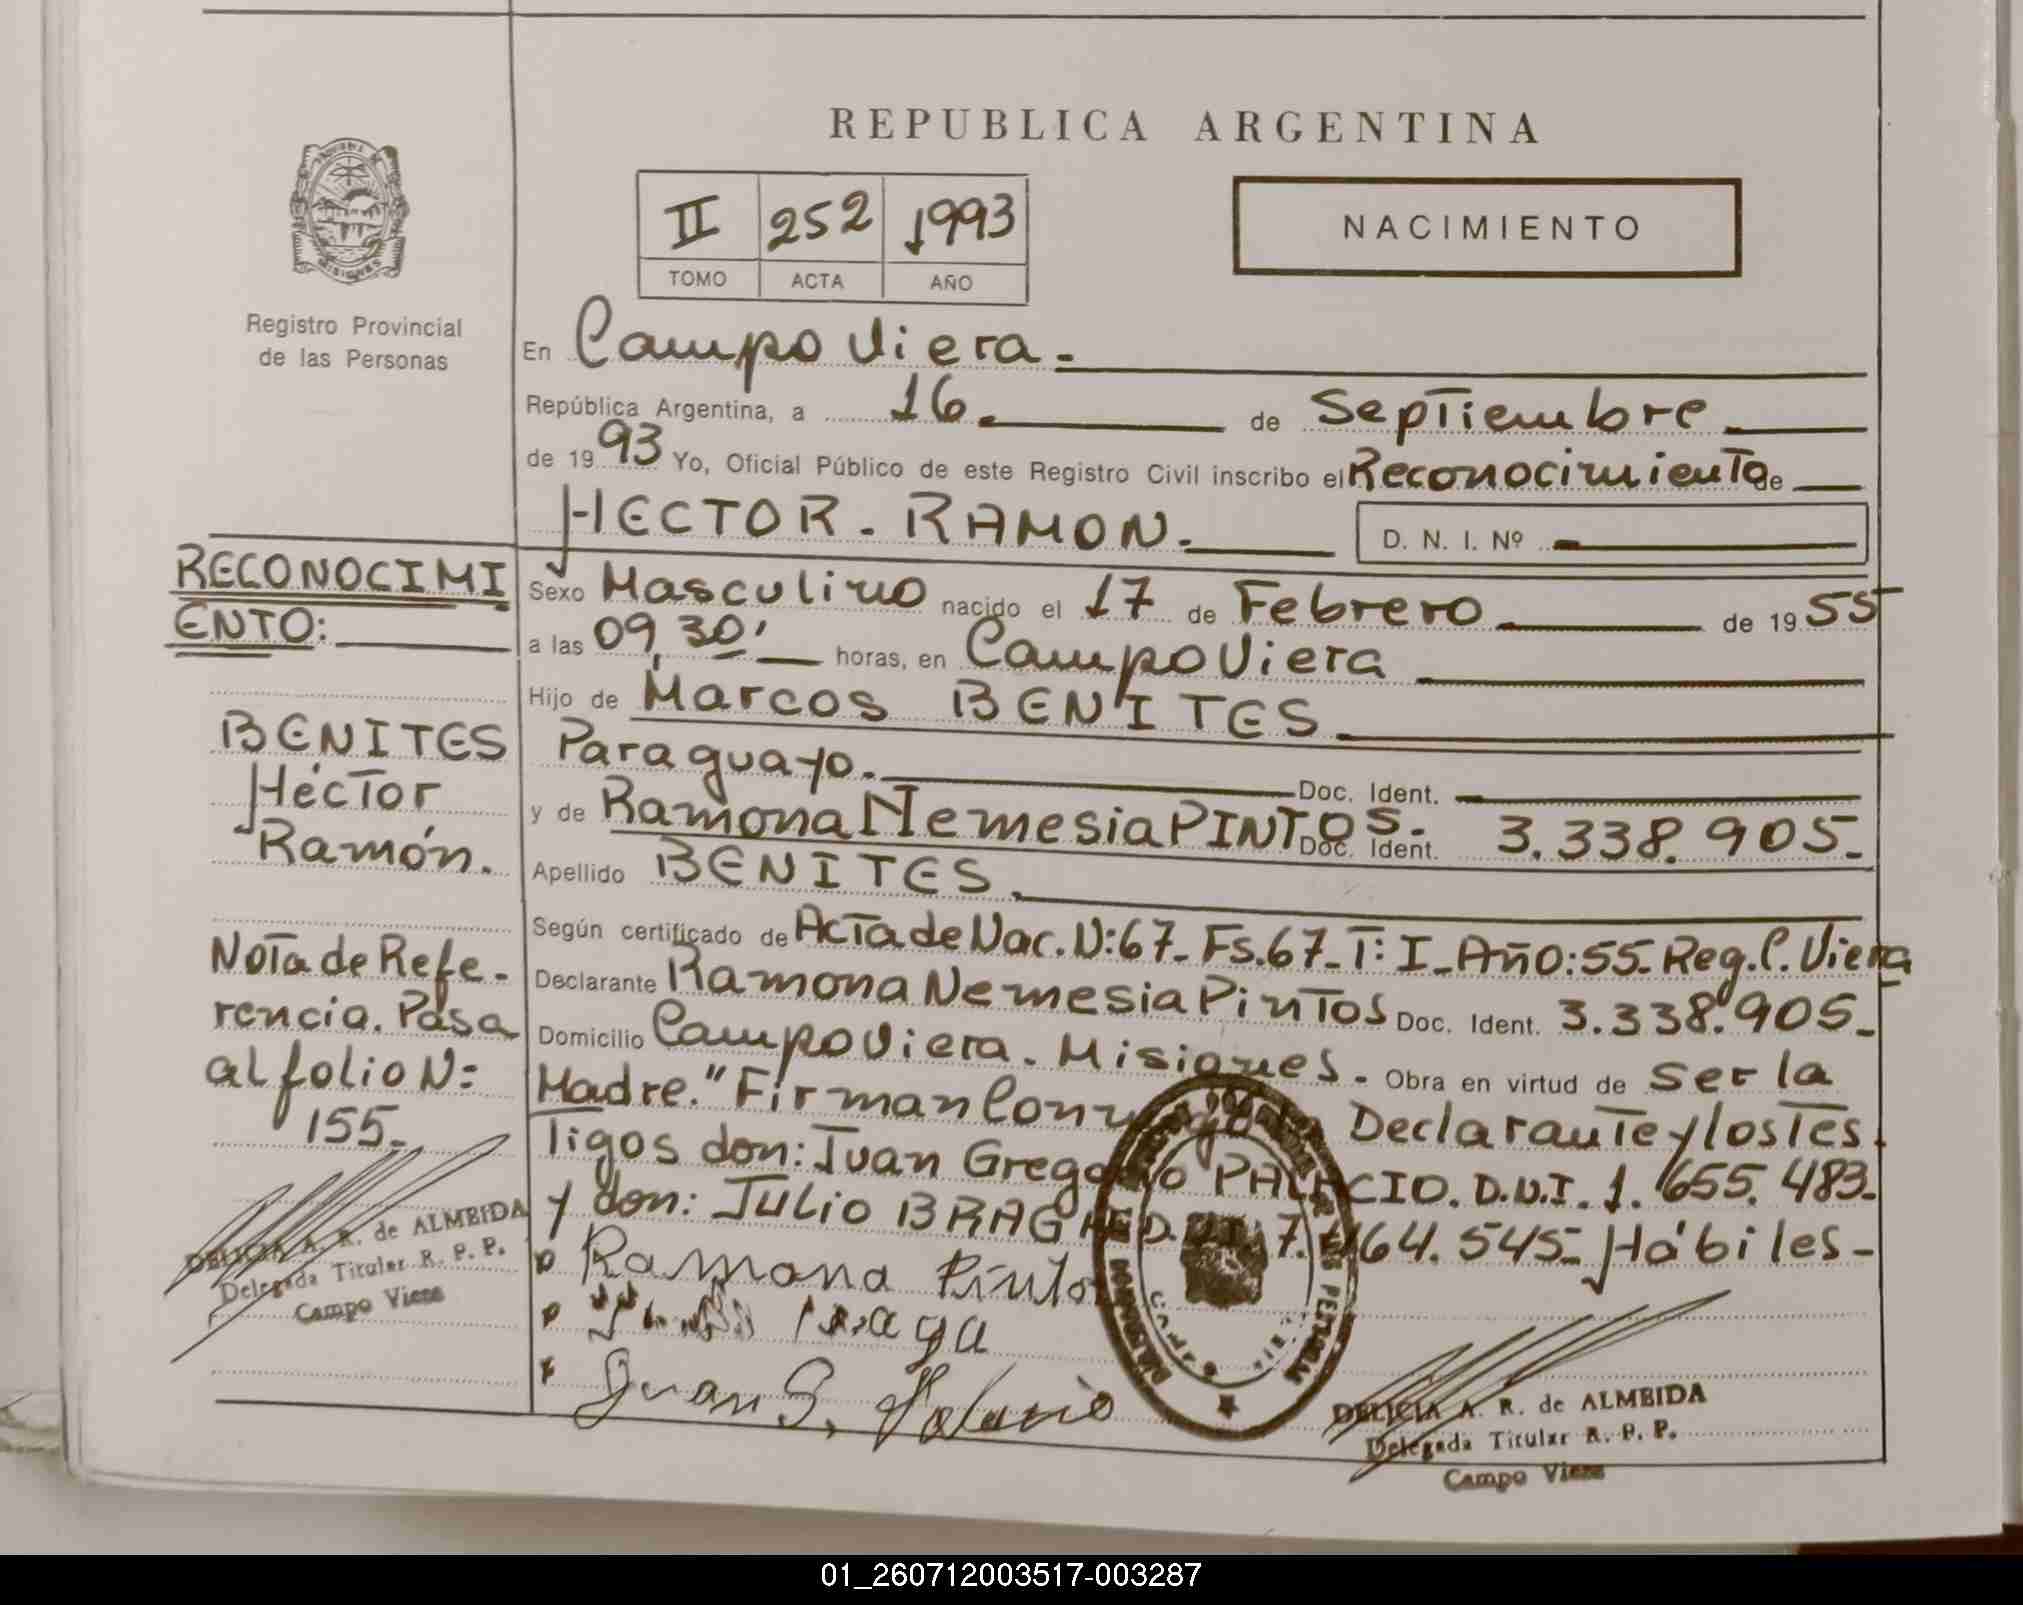 REPUBLICA ARGENTINA
II 252 1993
TOMO ACTA AÑO
NACIMIENTO
MISIONES
Registro Provincial
de las Personas
En Campo Viera.
República Argentina, a 16. de Septiembre
de 1993 Yo, Oficial Público de este Registro Civil inscribo el Reconocimiento de
HECTOR. RAMON.
D. N. I. Nº
RECONOCIMI
ENTO:
BENITES
Héctor
Ramón.
Nota de Refe-
rencia. Pasa
al folio N:
155.
DELICIA A. R. de ALMEIDA
Delegada Titular R. P. P.
Campo Viera
Sexo Masculino nacido el 17 de Febrero de 1955
a las 09,30' horas, en Campo Viera
Hijo de Marcos BENITES
Paraguayo. Doc. Ident.
y de Ramona Nemesia PINTOS. Doc. Ident. 3.338.905.
Apellido BENITES.
Según certificado de Acta de Nac. N:67. Fs.67. T: I. Año:55. Reg. C. Viera
Declarante Ramona Nemesia Pintos Doc. Ident. 3.338.905.
Domicilio Campo Viera. Misiones. Obra en virtud de ser la
Madre." Firman Declarante y los Tes.
Tigos don: Juan Gregorio PALACIO. D.N.I. 1.655.483.
y don: Julio BRAGA D.N.I. 7. 64.545. Hábiles.
Ramona Pintos
Braga
Juan G. Palacio
DELICIA A. R. de ALMEIDA
Delegada Titular R. P. P.
Campo Viera
01_260712003517-003287